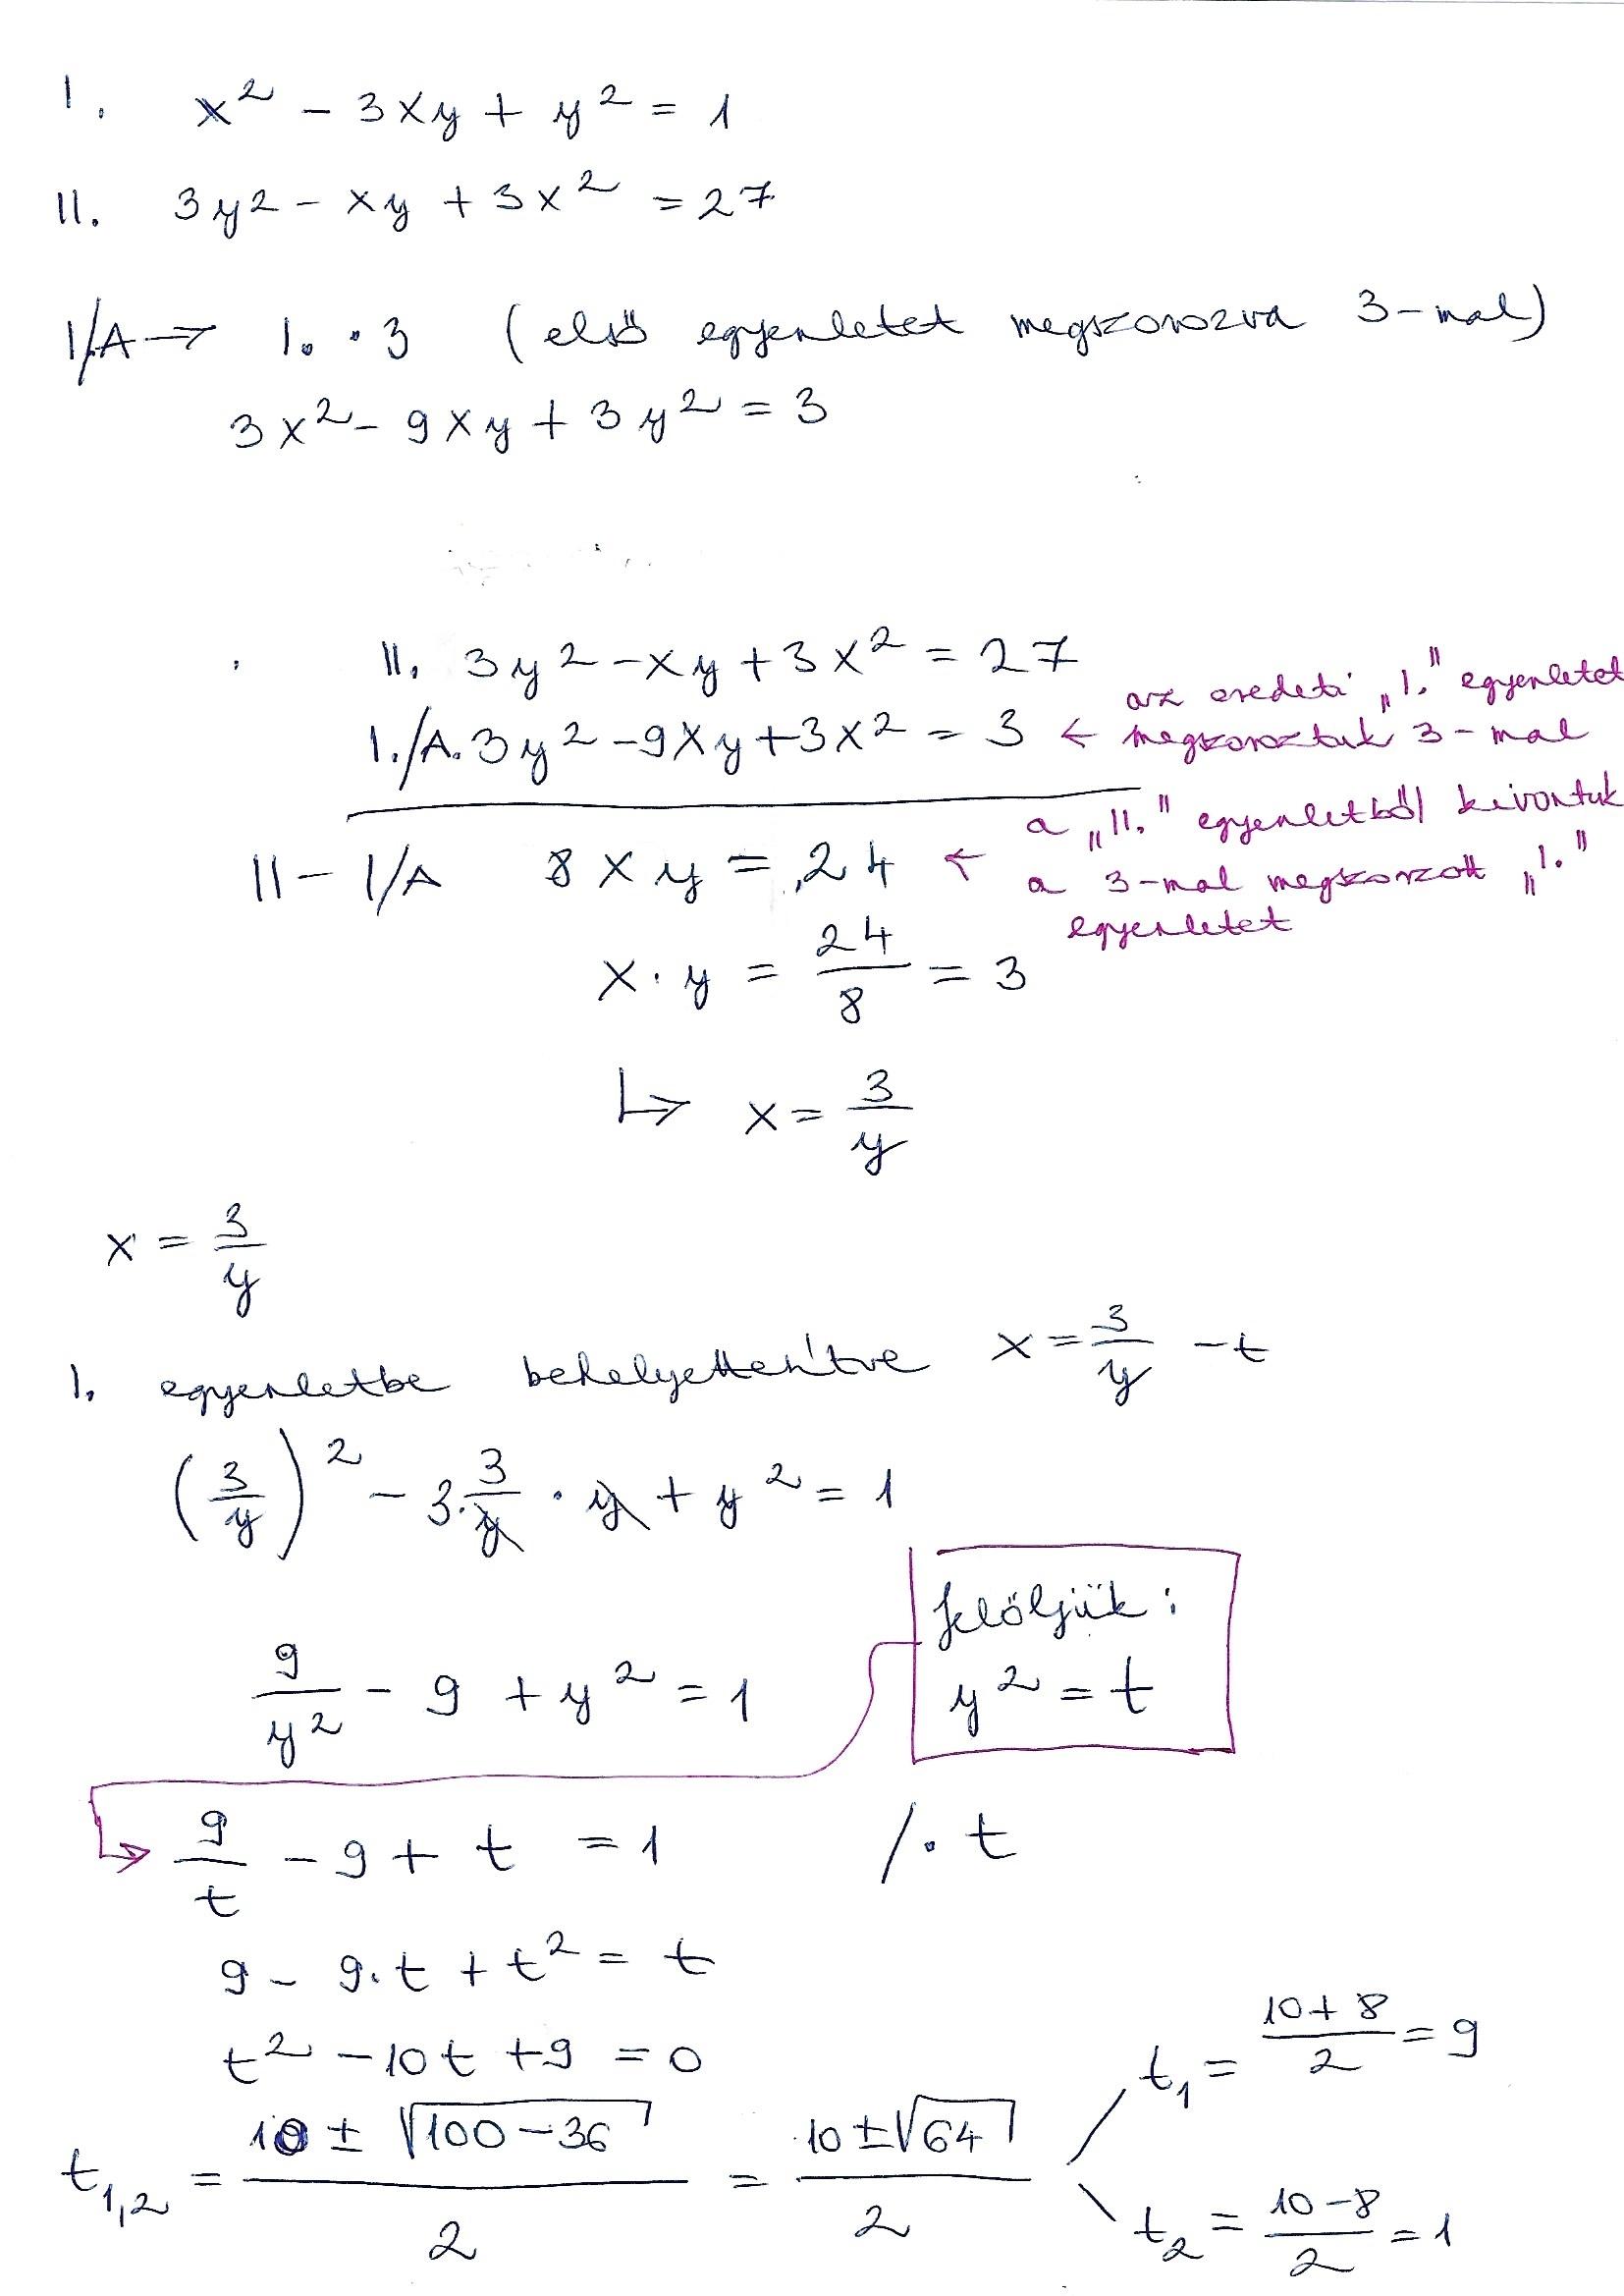 I. x² - 3xy + y² = 1
II. 3y² - xy + 3x² = 27
I/A → I. · 3 (első egyenletet megszorozva 3-mal)
3x² - 9xy + 3y² = 3
II. 3y² - xy + 3x² = 27
I./A. 3y² - 9xy + 3x² = 3 ← az eredeti „I." egyenletet
megszoroztuk 3-mal
II - I/A 8xy = 24 ← a „II." egyenletből kivontuk
a 3-mal megszorzott „I."
egyenletet
x · y = 24/8 = 3
↳ x = 3/y
x = 3/y
I. egyenletbe behelyettesítve x = 3/y -t
(3/y)² - 3 · 3/y · y + y² = 1
Jelöljük:
y² = t
9/y² - 9 + y² = 1
9/t - 9 + t = 1 / · t
9 - 9 · t + t² = t
t² - 10t + 9 = 0
t₁,₂ = (10 ± √(100 - 36))/2 = (10 ± √64)/2
t₁ = (10 + 8)/2 = 9
t₂ = (10 - 8)/2 = 1